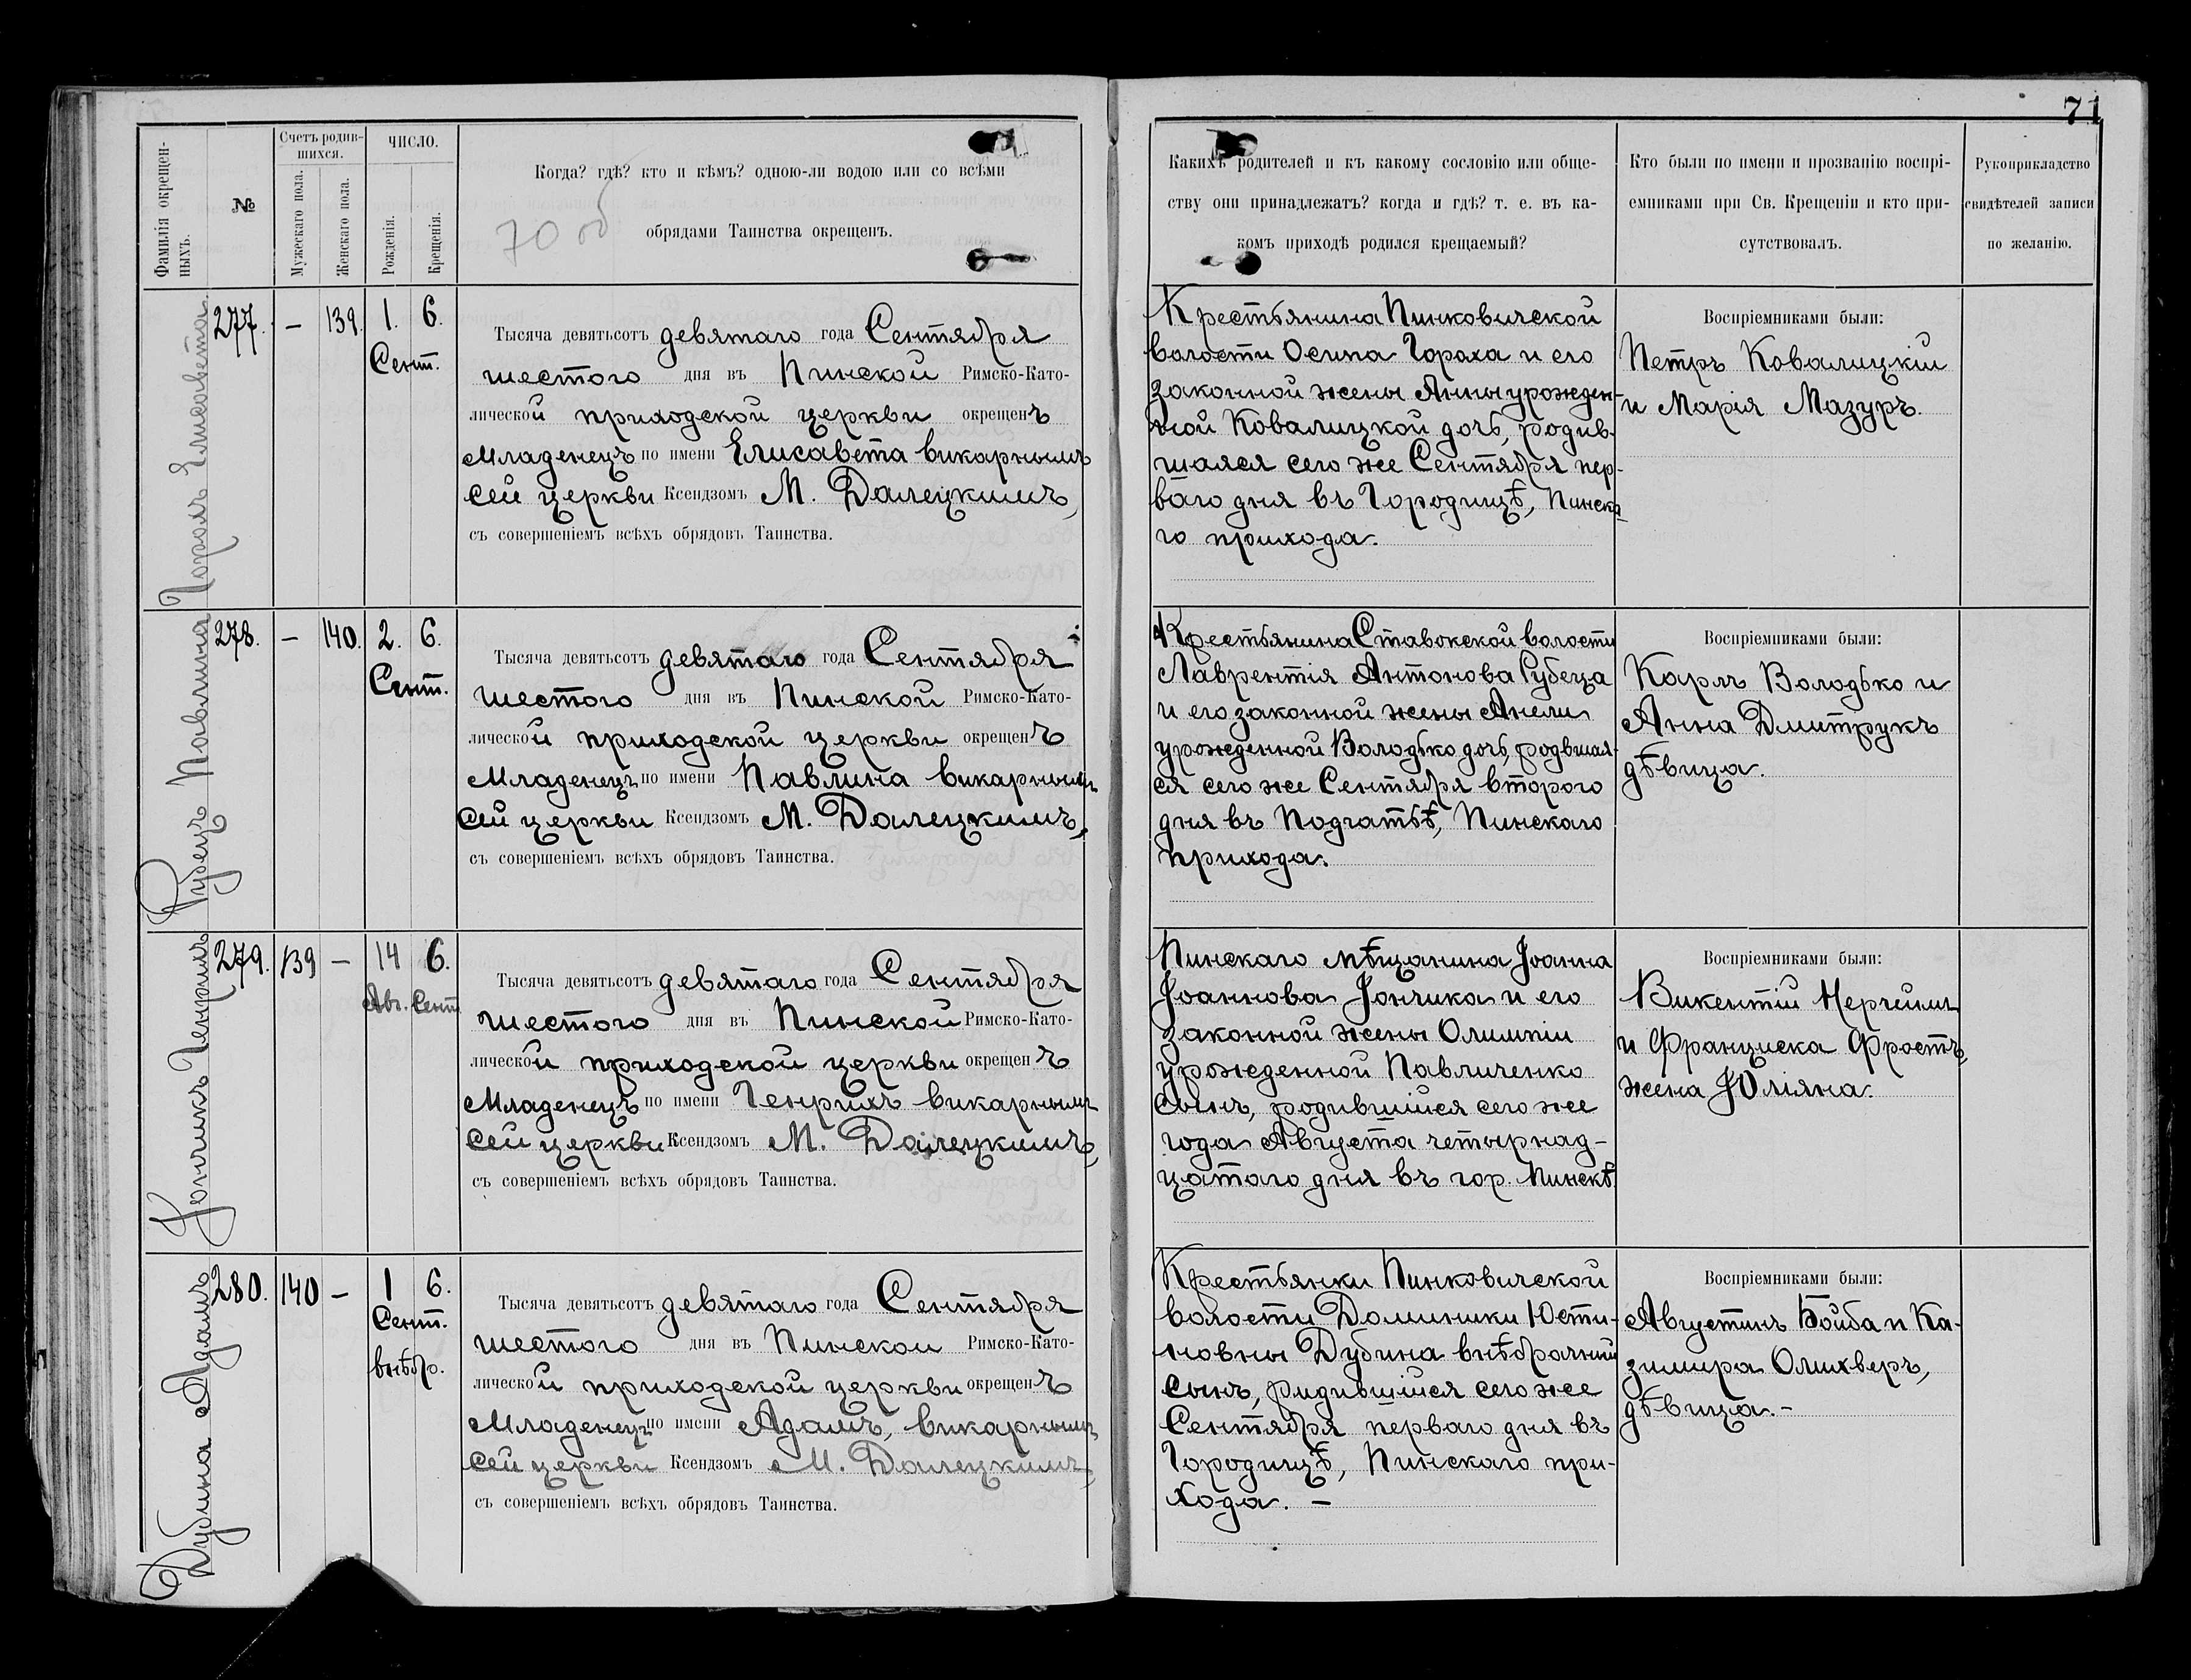 71
Фамилія окрещен-
ныхъ.
№
Счетъ родив-
шихся.
Мужескаго пола.
Женскаго пола.
ЧИСЛО.
Рожденія.
Крещенія.
Когда? гдѣ? кто и кѣмъ? одною-ли водою или со всѣми
обрядами Таинства окрещенъ.
70 об
Какихъ родителей и къ какому сословію или обще-
ству они принадлежатъ? когда и гдѣ? т. е. въ ка-
комъ приходѣ родился крещаемый?
Кто были по имени и прозванію воспрі-
емниками при Св. Крещеніи и кто при-
сутствовалъ.
Рукоприкладство
свидѣтелей записи
по желанію.
Горохъ Елисавета
277. — 139. 1. 6.
Сент.
Тысяча девятьсотъ девятаго года Сентября
шестого дня въ Пинской Римско-Като-
лической приходской церкви окрещенъ
Младенецъ по имени Елисавета викарнымъ
сей церкви Ксендзомъ М. Далецкимъ,
съ совершеніемъ всѣхъ обрядовъ Таинства.
Крестьянина Пинковичской
волости Осипа Гороха и его
законной жены Анны урожден-
ной Ковалицкой дочь, родив-
шаяся сего же Сентября пер-
ваго дня въ Городищѣ, Пинска-
го прихода.
Воспріемниками были:
Петръ Ковалицкій
и Марія Мазуръ.
Рубецъ Павлина
278. — 140. 2. 6.
Сент.
Тысяча девятьсотъ девятаго года Сентября
шестого дня въ Пинской Римско-Като-
лической приходской церкви окрещенъ
Младенецъ по имени Павлина викарнымъ
сей церкви Ксендзомъ М. Далецкимъ,
съ совершеніемъ всѣхъ обрядовъ Таинства.
Крестьянина Ставокской волости
Лаврентія Антонова Рубеца
и его законной жены Анели
урожденной Володько дочь, родвшая-
ся сего же Сентября второго
дня въ Подгатьѣ, Пинскаго
прихода.
Воспріемниками были:
Карлъ Володько и
Анна Дмитрукъ
дѣвица.
Іончикъ Генрихъ
279. 139 — 14 6.
Авг. Сент.
Тысяча девятьсотъ девятаго года Сентября
шестого дня въ Пинской Римско-Като-
лической приходской церкви окрещенъ
Младенецъ по имени Генрихъ викарнымъ
сей церкви Ксендзомъ М. Далецкимъ,
съ совершеніемъ всѣхъ обрядовъ Таинства.
Пинскаго мѣщанина Іоанна
Іоаннова Іончика и его
законной жены Олимпіи
урожденной Павличенко
сынъ, родившійся сего же
года Августа четырнад-
цатаго дня въ гор. Пинскѣ
Воспріемниками были:
Викентій Нерчейшъ
и Франциска Фростъ,
жена Юліяна.
Дубина Адамъ
280. 140 — 1 6.
Сент.
внѣбр.
Тысяча девятьсотъ девятаго года Сентября
шестого дня въ Пинской Римско-Като-
лической приходской церкви окрещенъ
Младенецъ по имени Адамъ, викарнымъ
сей церкви Ксендзомъ М. Далецкимъ,
съ совершеніемъ всѣхъ обрядовъ Таинства.
Крестьянки Пинковичской
волости Доминики Юсти-
новны Дубина внѣбрачный
сынъ, родившійся сего же
Сентября перваго дня въ
Городищѣ, Пинскаго при-
хода. —
Воспріемниками были:
Августинъ Бойба и Ка-
зимира Олихверъ,
дѣвица. -